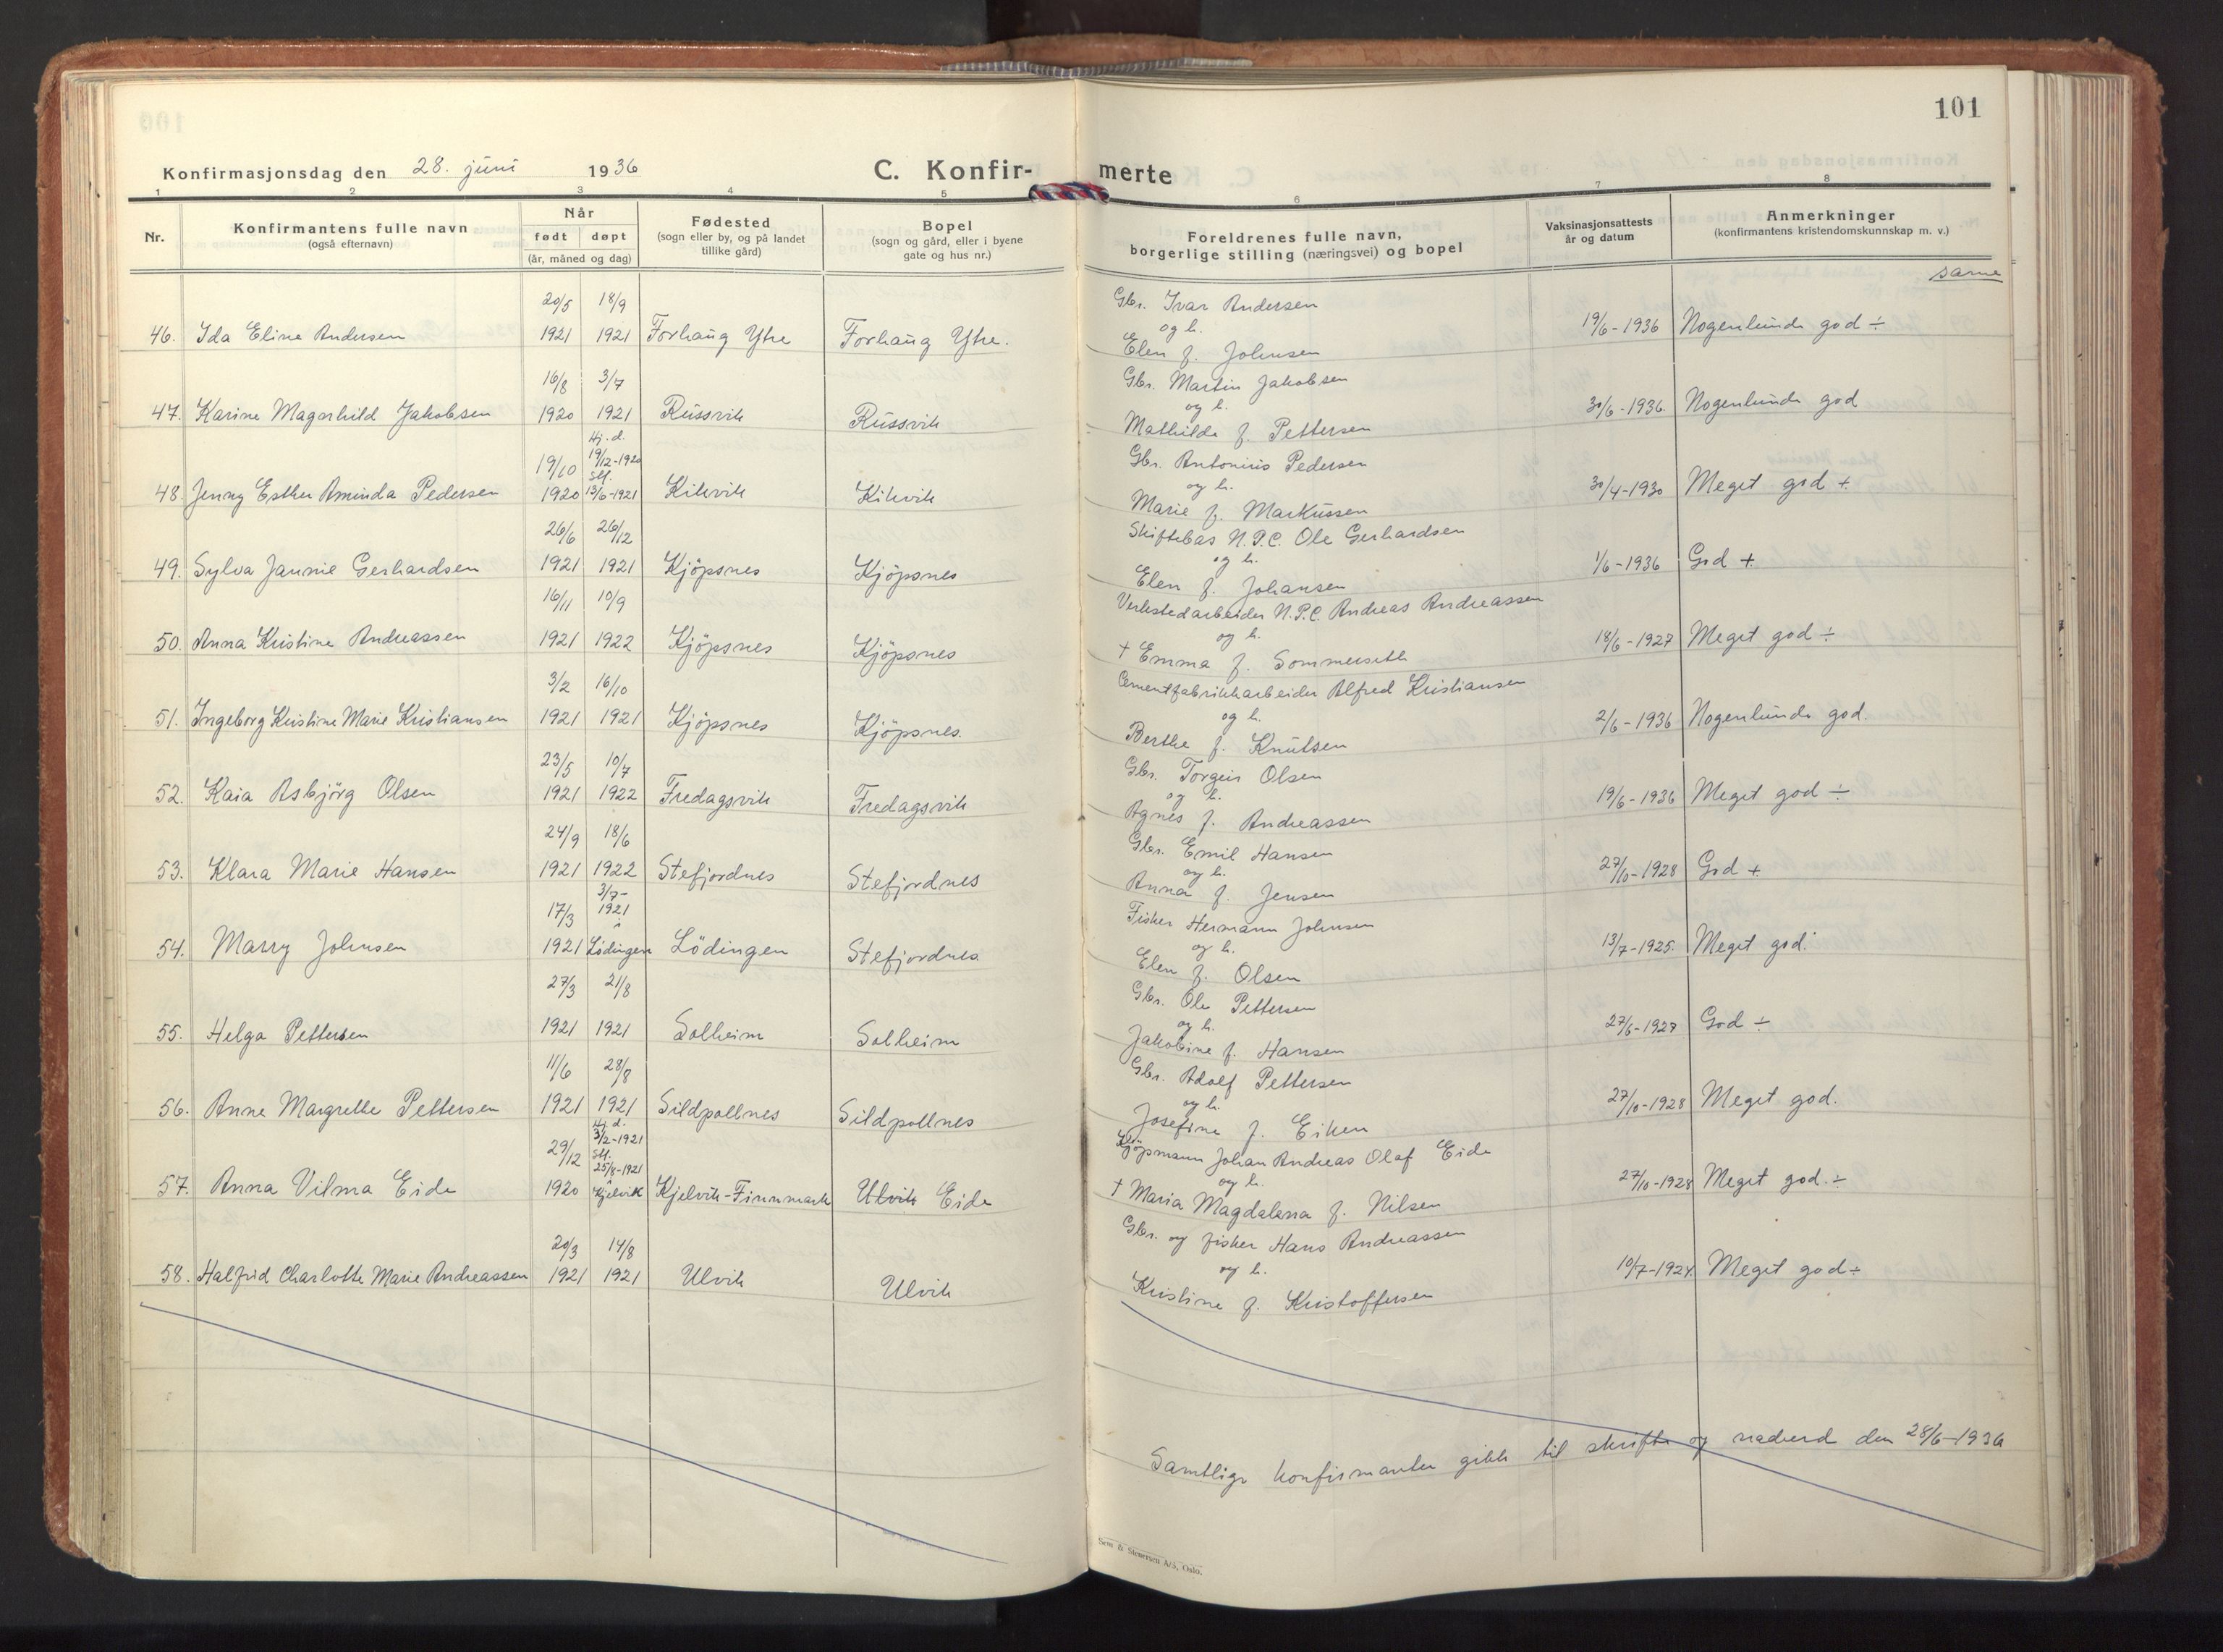 101
Konfirmasjonsdag den 28. juni 1936 C. Konfirmerte
1 2 3 4 5 6 7 8
Nr. Konfirmantens fulle navn (også efternavn) Når født døpt (år, måned og dag) Fødested (sogn eller by, og på landet tillike gård) Bopel (sogn og gård, eller i byene gate og hus nr.) Foreldrenes fulle navn, borgerlige stilling (næringsvei) og bopel Vaksinasjonsattests år og datum Anmerkninger (konfirmantens kristendomskunnskap m. v.)
same
46. Ida Eline Andersen 20/5 1921 18/9 1921 Forhaug Ytre Forhaug Ytre. Gbr. Ivar Andersen og h. Elen f. Johnsen 19/6-1936 Nogenlunde god ÷
47. Karine Magnhild Jakobsen 16/8 1920 3/7 1921 Russvik Russvik Gbr. Martin Jakobsen og h. Mathilde f. Pettersen 30/6-1936. Nogenlunde god
48. Jenny Esther Aminda Pedersen 19/10 1920 Hj. d. 19/12-1920 stf. 13/6-1921 Kikvik Kikvik Gbr. Antonius Pedersen og h. Marie f. Markussen 30/4-1930 Meget god +.
49. Sylva Jannie Gerhardsen 26/6 1921 26/12 1921 Kjöpsnes Kjöpsnes Skiftebas N.P.C. Ole Gerhardsen og h. Elen f. Johansen 1/6-1936 God +.
50. Anna Kristine Andreassen 16/11 1921 10/9 1922 Kjöpsnes Kjöpsnes Verkstedarbeider N.P.C. Andreas Andreassen og h. † Emma f. Sommerseth 18/6-1927 Meget god ÷
51. Ingeborg Kristine Marie Kristiansen 3/2 1921 16/10 1921 Kjöpsnes Kjöpsnes. Cementfabrikkarbeider Alfred Kristiansen og h. Berthe f. Knutsen 2/6-1936 Nogenlunde god.
52. Kaia Asbjörg Olsen 23/5 1921 10/7 1922 Fredagsvik Fredagsvik Gbr. Torgeir Olsen og h. Agnes f. Andreassen 19/6-1936 Meget god ÷
53. Klara Marie Hansen 24/9 1921 18/6 1922 Stefjordnes Stefjordnes Gbr. Emil Hansen og h. Anna f. Jensen 27/10-1928 God +.
54. Marry Johnsen 17/3 1921 3/7- 1921 i Lödingen Lödingen Stefjordnes Fisker Hermann Johnsen og h. Elen f. Olsen 13/7-1925. Meget god.
55. Helga Pettersen 27/3 1921 21/8 1921 Solheim Solheim Gbr. Ole Pettersen og h. Jakobine f. Hansen 27/6-1927 God ÷
56. Anne Margrethe Pettersen 11/6 1921 28/8 1921 Sildpollnes Sildpollnes Gbr. Adolf Pettersen og h. Josefine f. Eiken 27/10-1928 Meget god.
57. Anna Vilma Eide 29/12 1920 Hj. d. 3/2-1921 stf. 25/8-1921 i Kjelvik Kjelvik-Finnmark Ulvik Eide Kjöpmann Johan Andreas Olaf Eide og h. † Maria Magdalena f. Nilsen 27/10-1928 Meget god.÷
58. Halfrid Charlotte Marie Andreassen 20/3 1921 14/8 1921 Ulvik Ulvik Gbr. og fisker Hans Andreassen og h. Kristine f. Kristoffersen 10/7-1924. Meget god÷
Samtlige konfirmanter gikk til skrifte og nadverd den 28/6-1936
Sem & Stenersen A/S, Oslo.